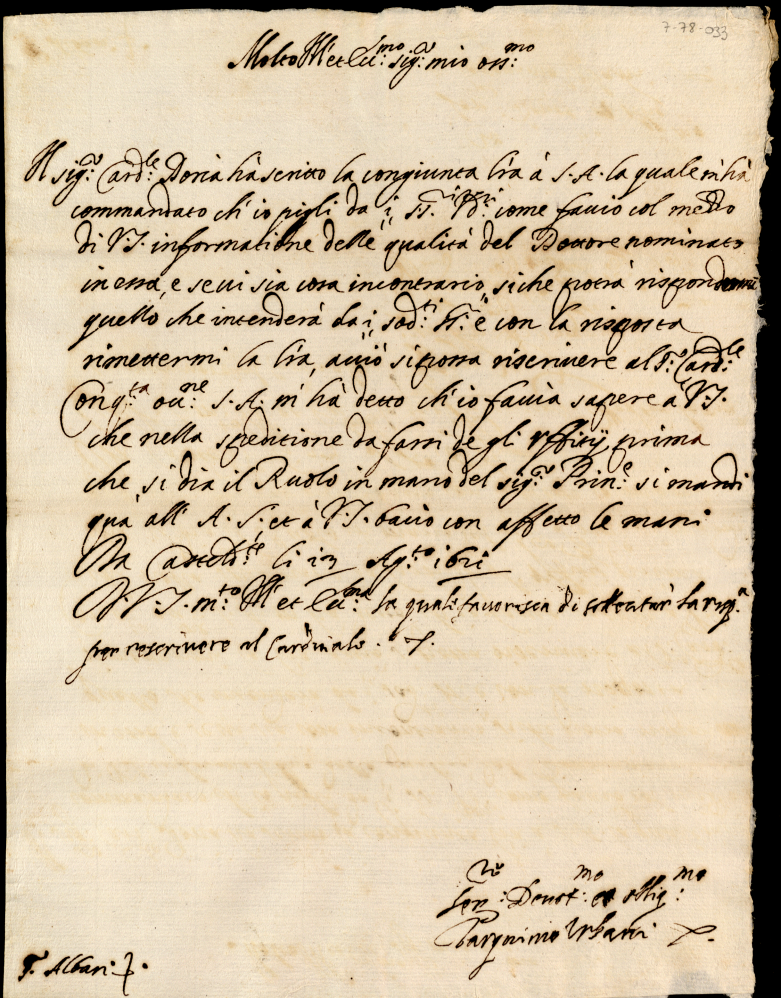 7-78-033
Molto Ill.re et Ecc.mo sig.r mio oss.mo
Il sig.r Card.le Doria ha scritto la congiunta l'ra à S.A. la quale m'hà
commandato ch'io pigli da i SS.ri come faccio col mezzo
di V.S. informatione delle qualità del Dottore nominato
in essa, e se vi sia cosa incontrario, si che potrà rispondermi
quello che intenderà da i sod.ti SS.ri e con la risposta
rimettermi la l'ra, acciò si possa riscrivere al S.r Card.le
Con q.ta occ.ne S.A. m'hà detto ch'io faccia sapere a V.S.
che nella speditione da farsi de gli uffitij prima
che si dia il Ruolo in mano del sig.r Prin.e si mandi
qua all' A.S. et à V.S. bacio con affetto le mani
Da Casteld.te li 23 Ag.to 1621
D V.S. m.to Ill.re et Ecc.ma la quale favorisca di sollecitar la risp.a
per rescrivere al Cardinale.
Ser.re Devot.mo et obblig.mo
Urbani
S. Albani